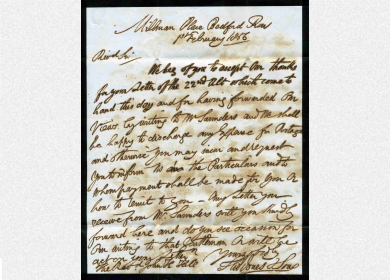 Millman Place Bedford Row
1st February 1816
Revd Sir
We beg of you to accept Our thanks
for your Letter of the 22nd Ult which came to
hand this day and for having forwarded Our
Views by writing to Mr Saunders and We shall
be happy to discharge any Expence for Postage
and otherwise you may incur and request
you to inform Us are the Particulars and to
whom payment shall be made for you or
how to remit to you - Any Letter you
receive from Mr Saunders will you kindly
forward here and do you see reason for
Our writing to that Gentleman or will he
act on your
Yours
The Rev
Jarvones & Sons